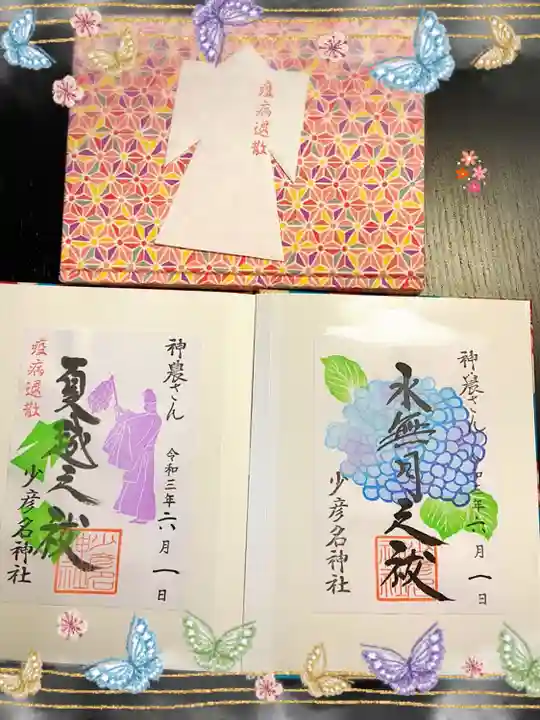 疫病退散
神農さん
夏越之祓
疫病退散
令和三年六月一日
少彦名神社
神農さん
水無月之祓
令和三年六月一日
少彦名神社